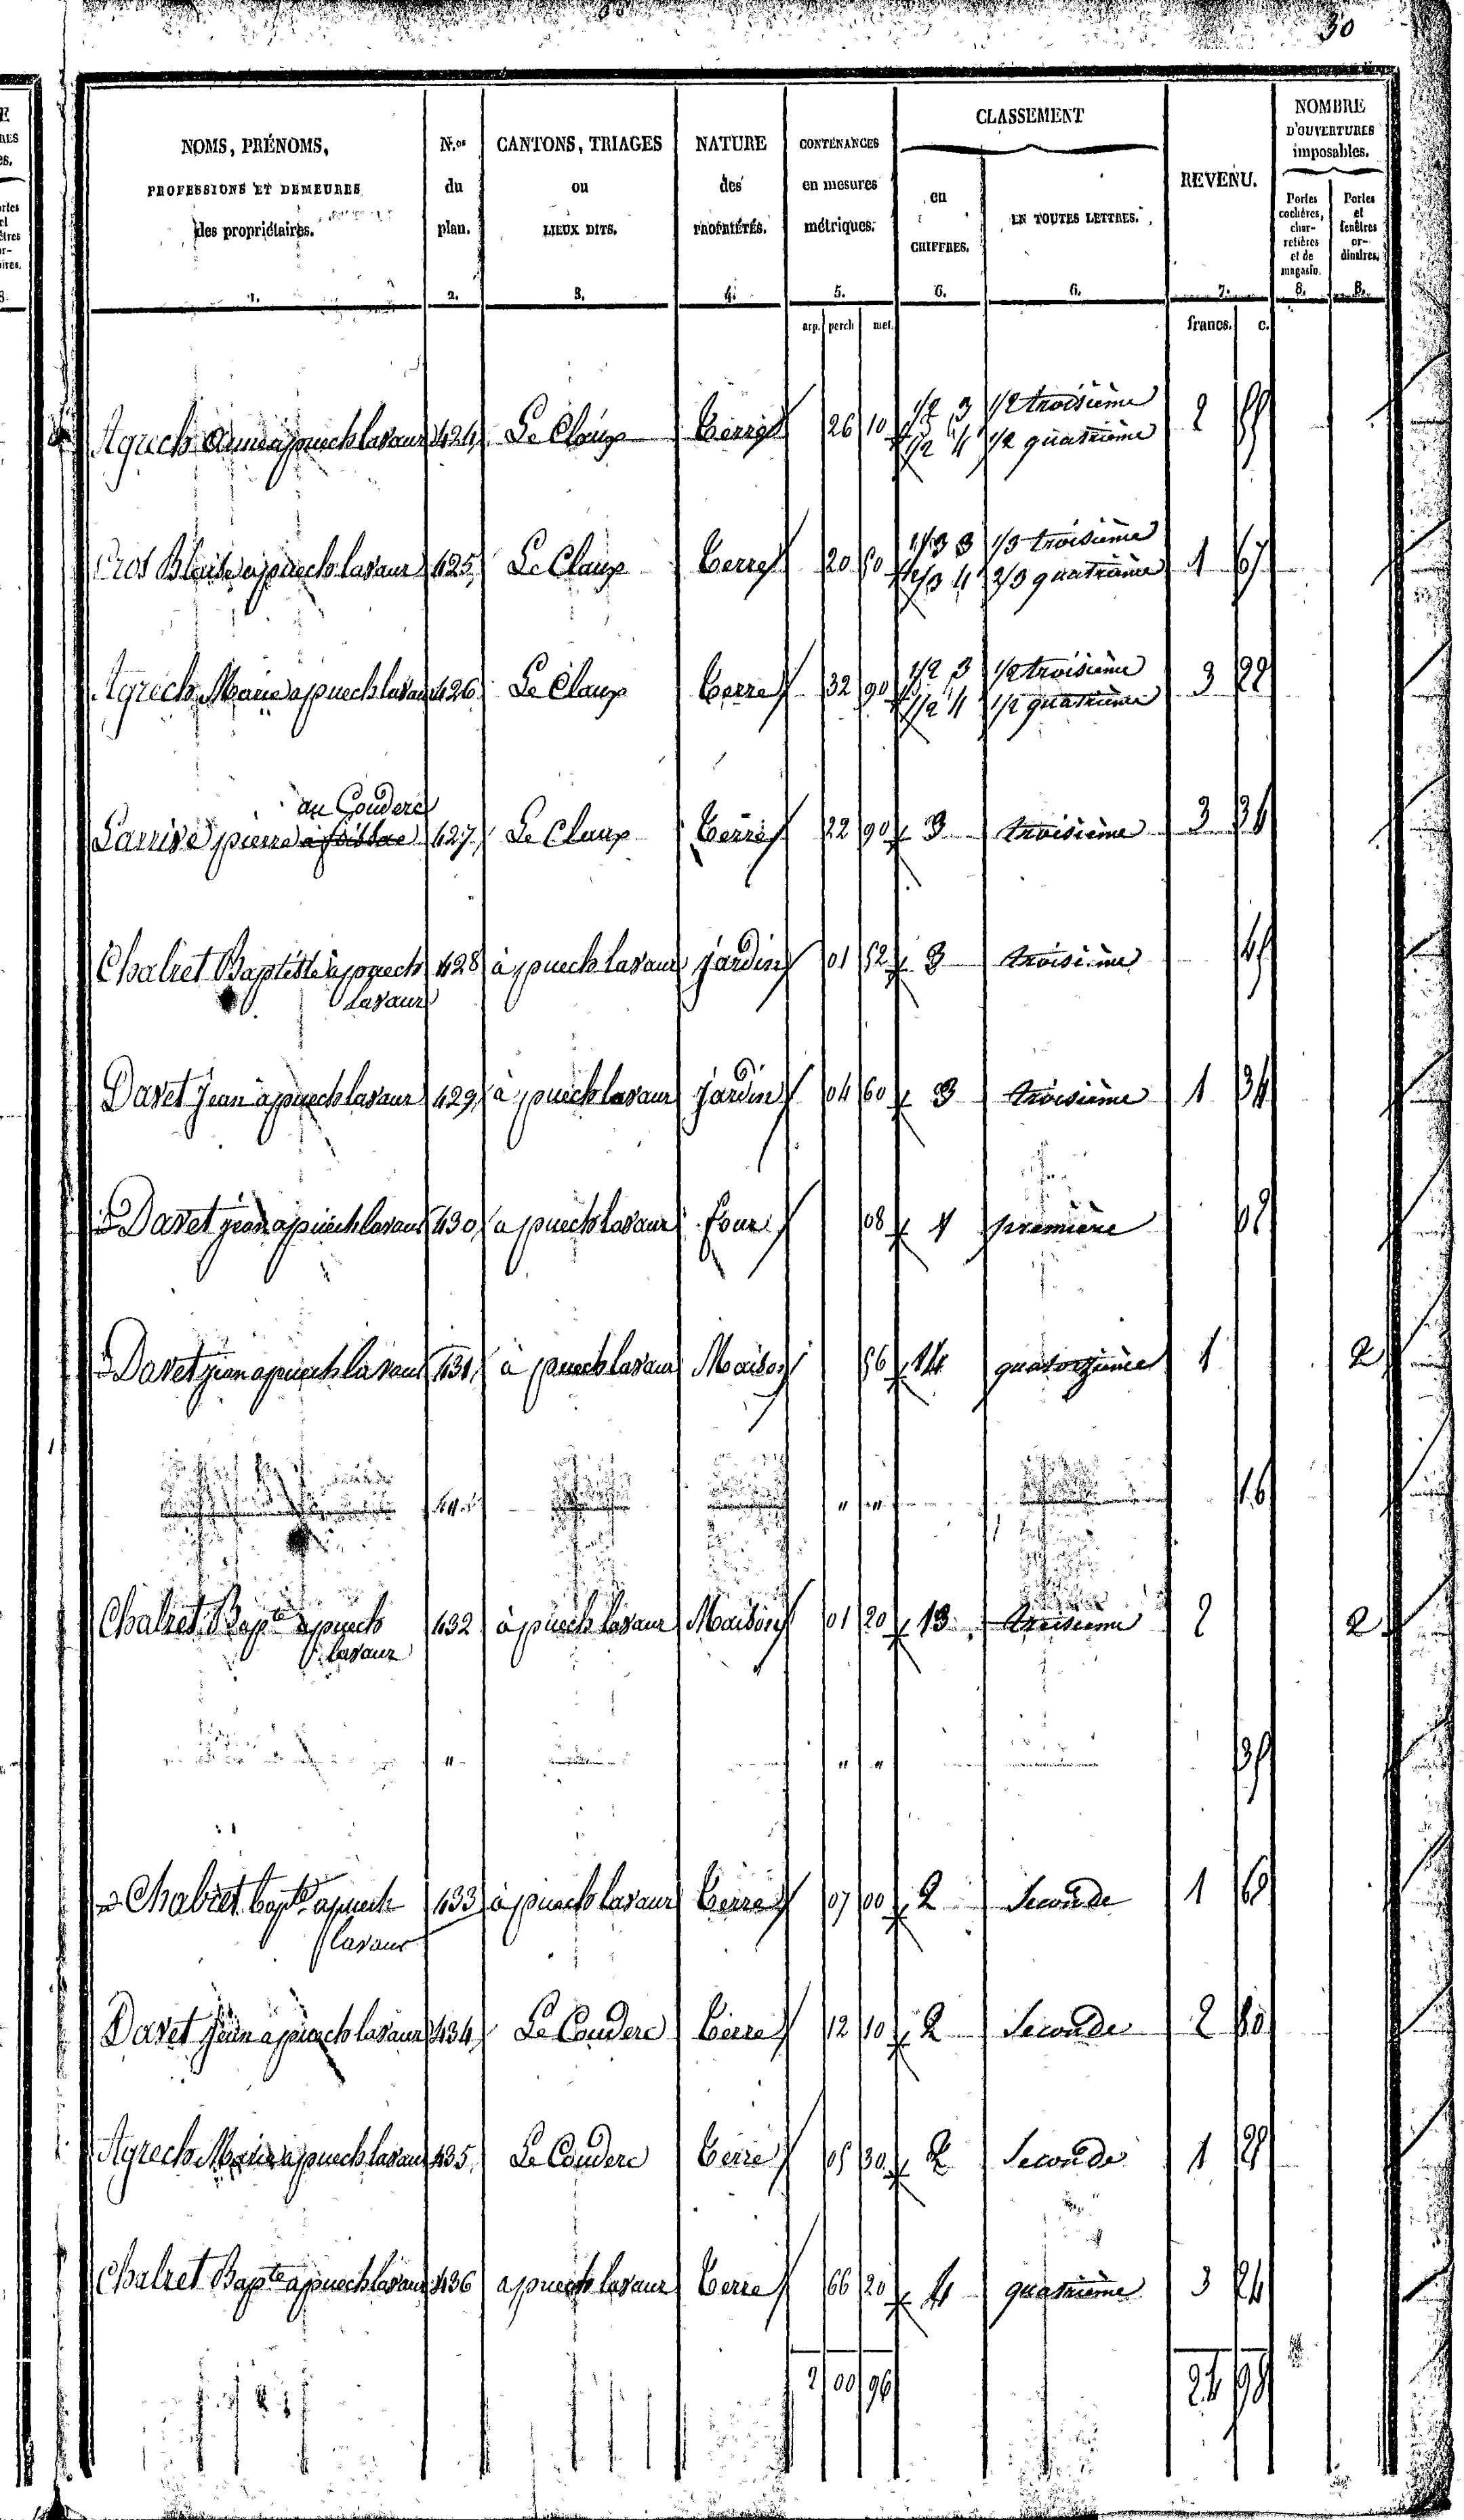 30
NOMS, PRÉNOMS, PROFESSIONS ET DEMEURES des propriétaires. 1.
N.os du plan. 2.
CANTONS, TRIAGES ou LIEUX DITS. 3.
NATURE des PROPRIÉTÉS. 4.
CONTENANCES en mesures métriques. 5.
CLASSEMENT
en CHIFFRES. 6.
EN TOUTES LETTRES. 6.
REVENU. 7.
NOMBRE D'OUVERTURES imposables.
Portes cochères, charretières et de magasin. 8.
Portes et fenêtres ordinaires. 8.
arp. perch met. francs. c.
Agrech apuech lavaur 424 Le Claux Terre 26 10 1/2 3 1/2 troisième 2
1/2 4 1/2 quatrième
Cros Blaise apuech lavaur 425 Le Claux Terre 20 1/3 3 1/3 troisième 1 67
2/3 4 2/3 quatrième
Agrech Marie apuech lavaur 426 Le Claux Terre 32 90 1/2 3 1/2 troisième 3 22
1/2 4 1/2 quatrième
au Couderc
Larrive pierre 427 Le Claux Terre 22 90 3 troisième 3
Chalret Baptiste à puech 428 à puech lavaur jardin 01 52 3 troisième 45
lavaur
Davet jean à puech lavaur 429 à puech lavaur jardin 04 60 3 troisième 1 34
Davet jean apuech lavaur 430 a puech lavaur four 08 1 première 02
Davet jean apuech lavaur 431 à puech lavaur Maison 56 14 quatorzième 1 2
" " 16
Chalret Bapte apuech 432 à puech lavaur Maison 01 20 13 treisième 2 2
lavaur
" " " 35
Chalret bapte apuech 433 à puech lavaur Terre 07 00 2 Seconde 1
lavaur
Davet jean a puech lavaur 434 Le Couderc Terre 12 10 2 Seconde 2
Agrech Marie apuech lavaur 435 Le Couderc Terre 05 30 2 Seconde 1
Chalret Bapte apuech lavaur 436 a puech lavaur Terre 66 20 4 quatrième 3 24
2 00 96 24